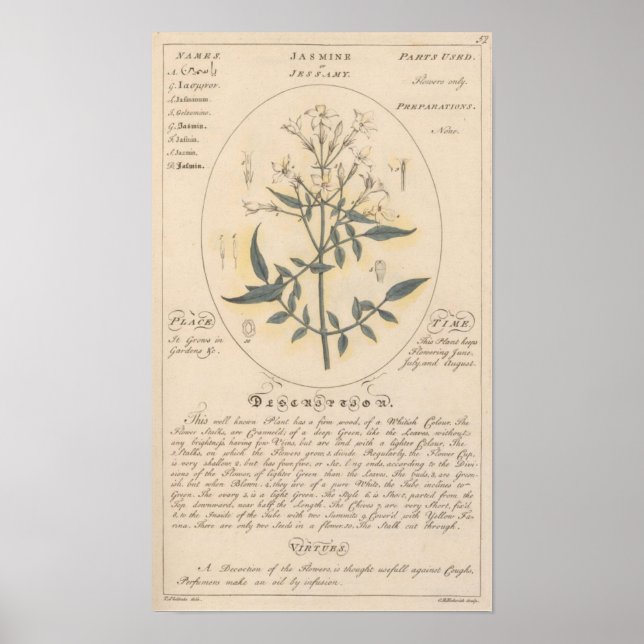 57
NAMES.
A. ياسمين
G. Ιασμινον.
L. Jasminum.
I. Gelsomino.
G. Jasmin.
F. Jasmin.
S. Jazmin.
D. Jasmin.
JASMINE
or
JESSAMY.
PARTS USED.
Flowers only.
PREPARATIONS.
None.
PLACE
It Grows in
Gardens &c.
TIME.
This Plant keeps
Flowering June,
July, and August.
DESCRIPTION.
This well known Plant has a firm wood, of a Whitish Colour. The
Flower Stalks, are Channeld, of a deep Green, like the Leaves, without
any brightness, having few Veins, but are lind with a lighter Colour. The
2. Stalks, on which the Flowers grow, 1. divide Regularly, the Flower Cup,
is very shallow 2. but, has four, five, or Six, long ends, according to the Divi-
sions of the Flower, of lighter Green than the Leaves. The buds, 3. are Green-
ish, but when Blown, 4. they are of a pure White, the Tube inclines to
Green. The ovary 5. is a light Green. The Style 6. is Short, parted from the
Top downward, near half the Length. The Chives 7. are very Short, fix'd,
8. to the Inside of the Tube with two Summits 9. Cover'd with Yellow Fa-
rina. There are only two Seeds in a flower. 10. The Stalk cut through.
VIRTUES.
A Decoction of the Flowers, is thought usefull against Coughs,
Perfumers make an oil by infusion.
T. Sheldrake delin.
C.H. Hemerich Sculp.